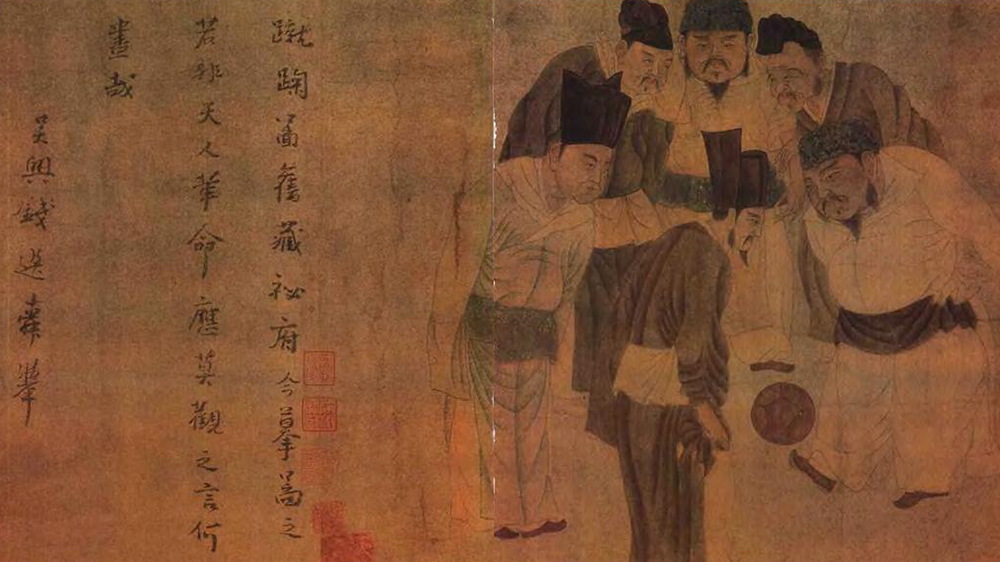 蹴鞠啚舊藏祕府今摹啚之
若非天人革命應莫觀之言何
盡哉
吳興錢選舜舉